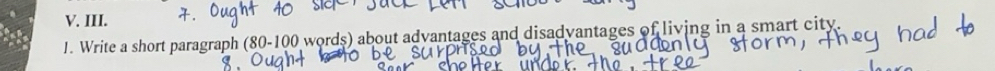 7. Ought to sick, Jack left school
V. III.
1. Write a short paragraph (80-100 words) about advantages and disadvantages of living in a smart city.
8. Ought to be surprised by the suddenly storm, they had to
shelter under the tree